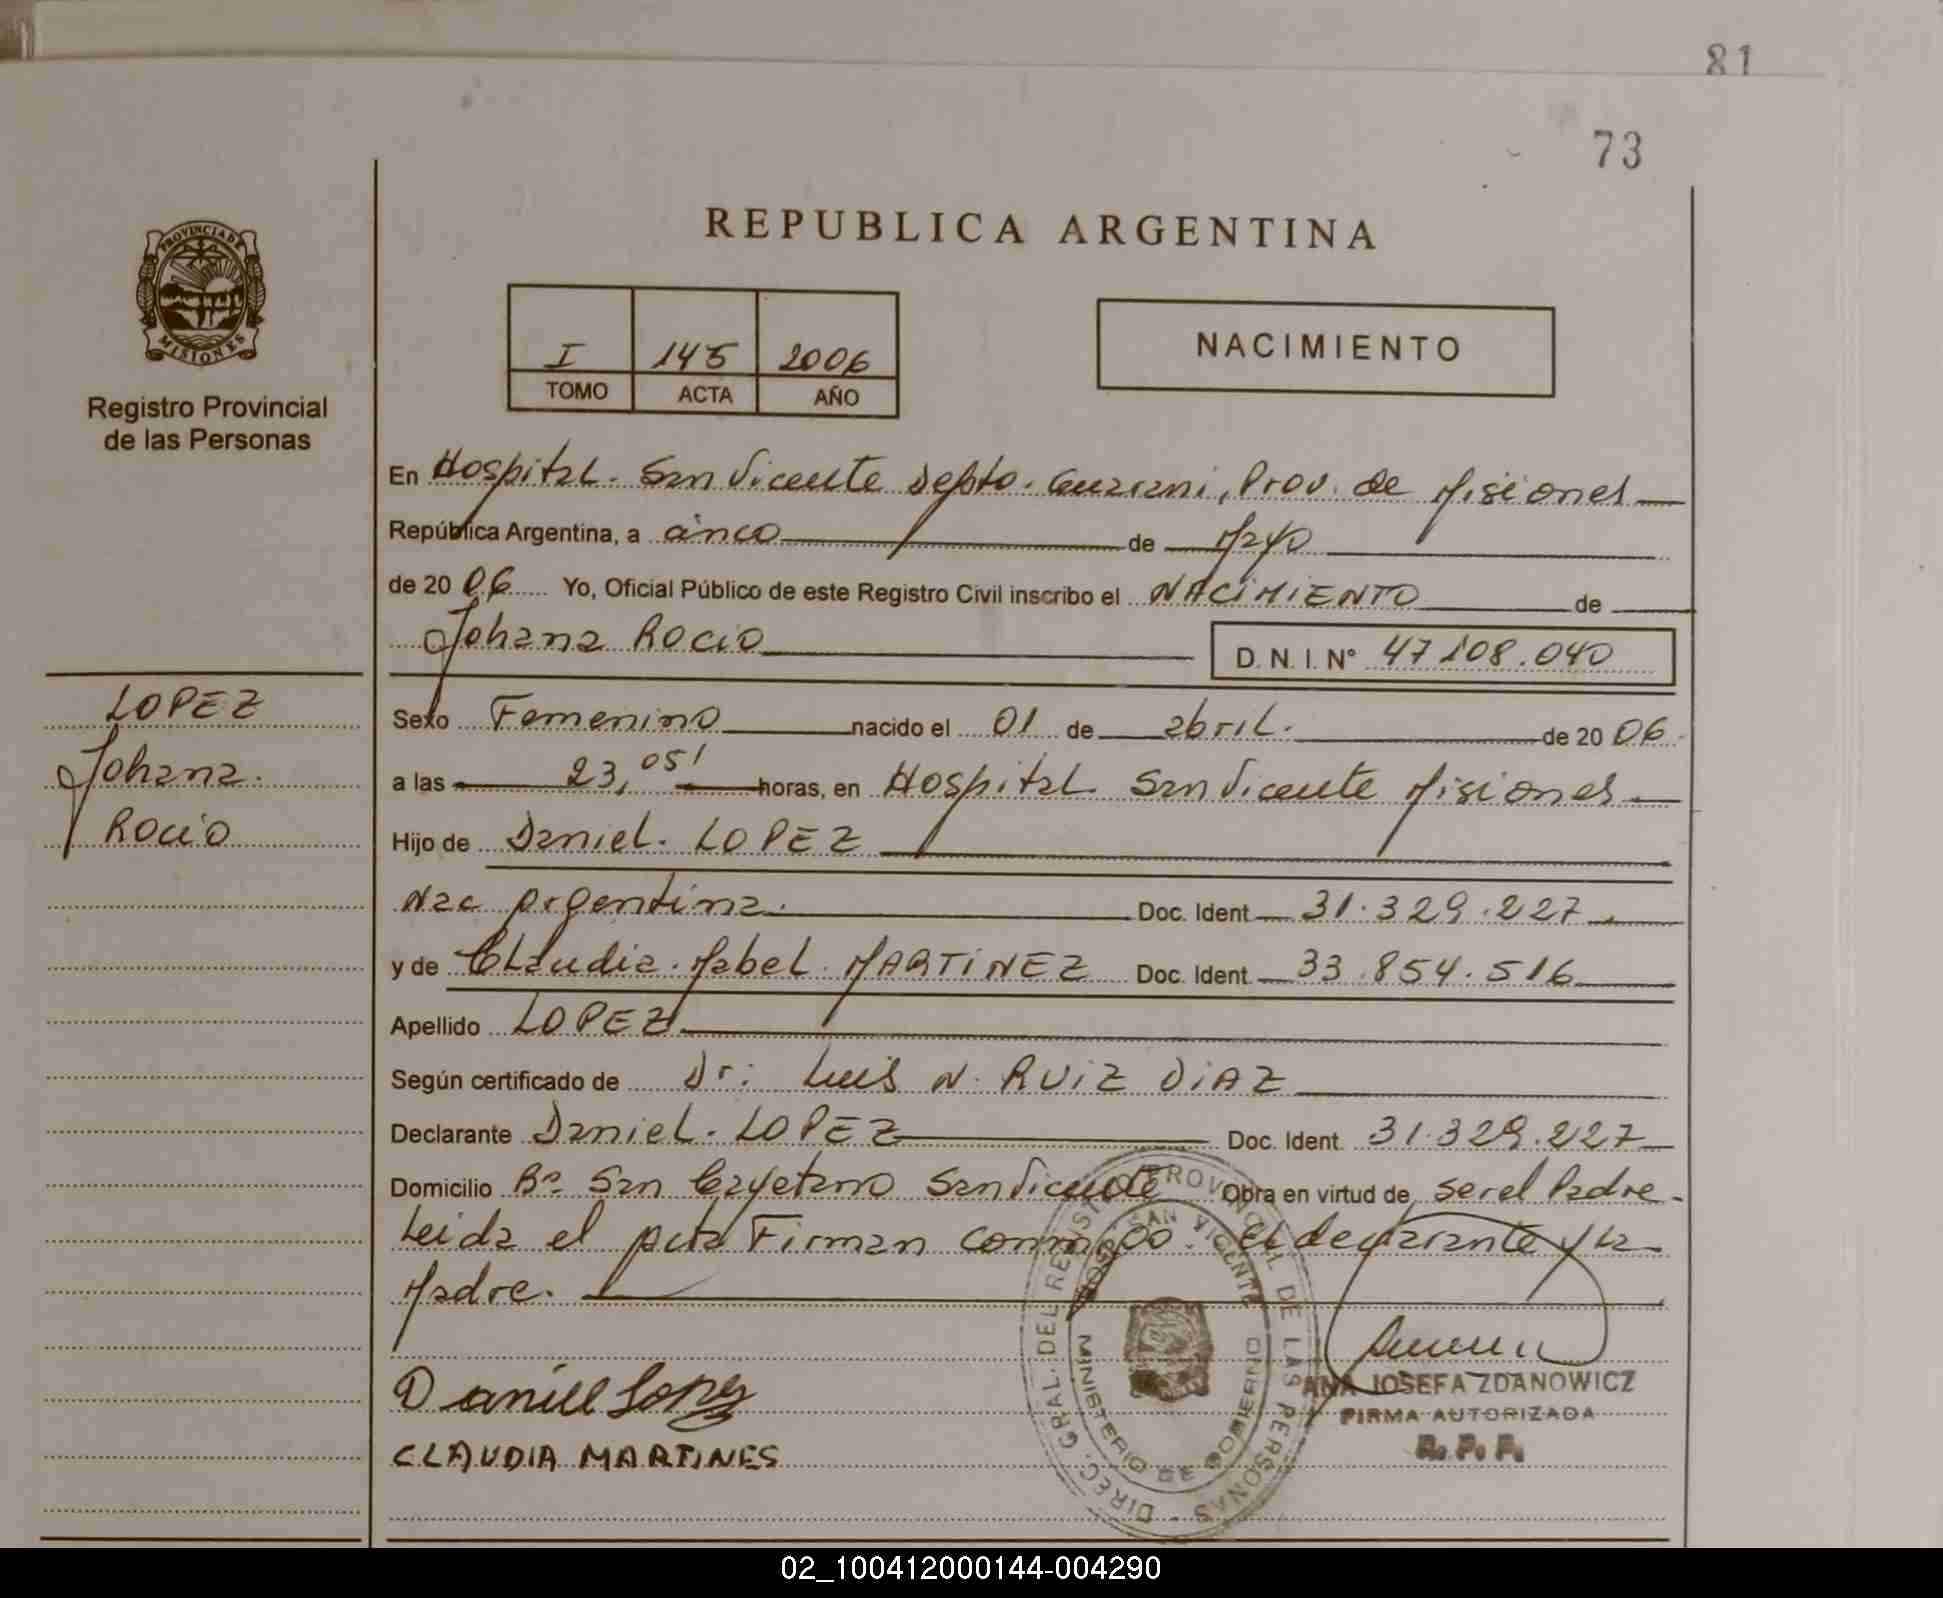 81
73
PROVINCIA DE
MISIONES
Registro Provincial
de las Personas
REPUBLICA ARGENTINA
I 145 2006
TOMO ACTA AÑO
NACIMIENTO
En Hospital. San Vicente Depto. Guarani, Prov. de Misiones
República Argentina, a cinco de Mayo
de 20 06 Yo, Oficial Público de este Registro Civil inscribo el NACIMIENTO de
Johana Rocio D. N. I. N° 47108.040
LOPEZ
Johana.
Rocio
Sexo Femenino nacido el 01 de abril. de 20 06.
a las 23,05' horas, en Hospital San Vicente Misiones
Hijo de Daniel. LOPEZ
Nac Argentina. Doc. Ident. 31.329.227.
y de Claudia. Mabel. MARTINEZ Doc. Ident. 33.854.516
Apellido LOPEZ
Según certificado de Dr: Luis N. RUIZ DIAZ
Declarante Daniel. LOPEZ Doc. Ident. 31.329.227
Domicilio B° San Cayetano San Vicente Obra en virtud de ser el Padre
Leida el Acta Firman conmigo. El declarante y la
Madre.
Daniel Lopez
CLAUDIA MARTINES
DIREC. GRAL. DEL REGISTRO PROVINCIAL DE LAS PERSONAS -
HOSP. SAN VICENTE
MINISTERIO DE GOBIERNO
ANA JOSEFA ZDANOWICZ
FIRMA AUTORIZADA
R. P. P.
02_100412000144-004290